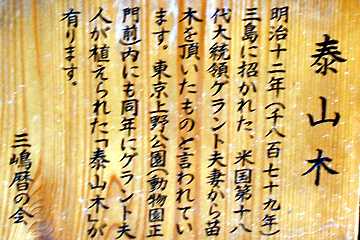 泰山木
明治十二年（千八百七十九年）
三島に招かれた、米国第十八
代大統領グラント夫妻から苗
木を頂いたものと言われてい
ます。東京上野公園（動物園正
門前）内にも同年にグラント夫
人が植えられた「泰山木」が
有ります。
三嶋暦の会